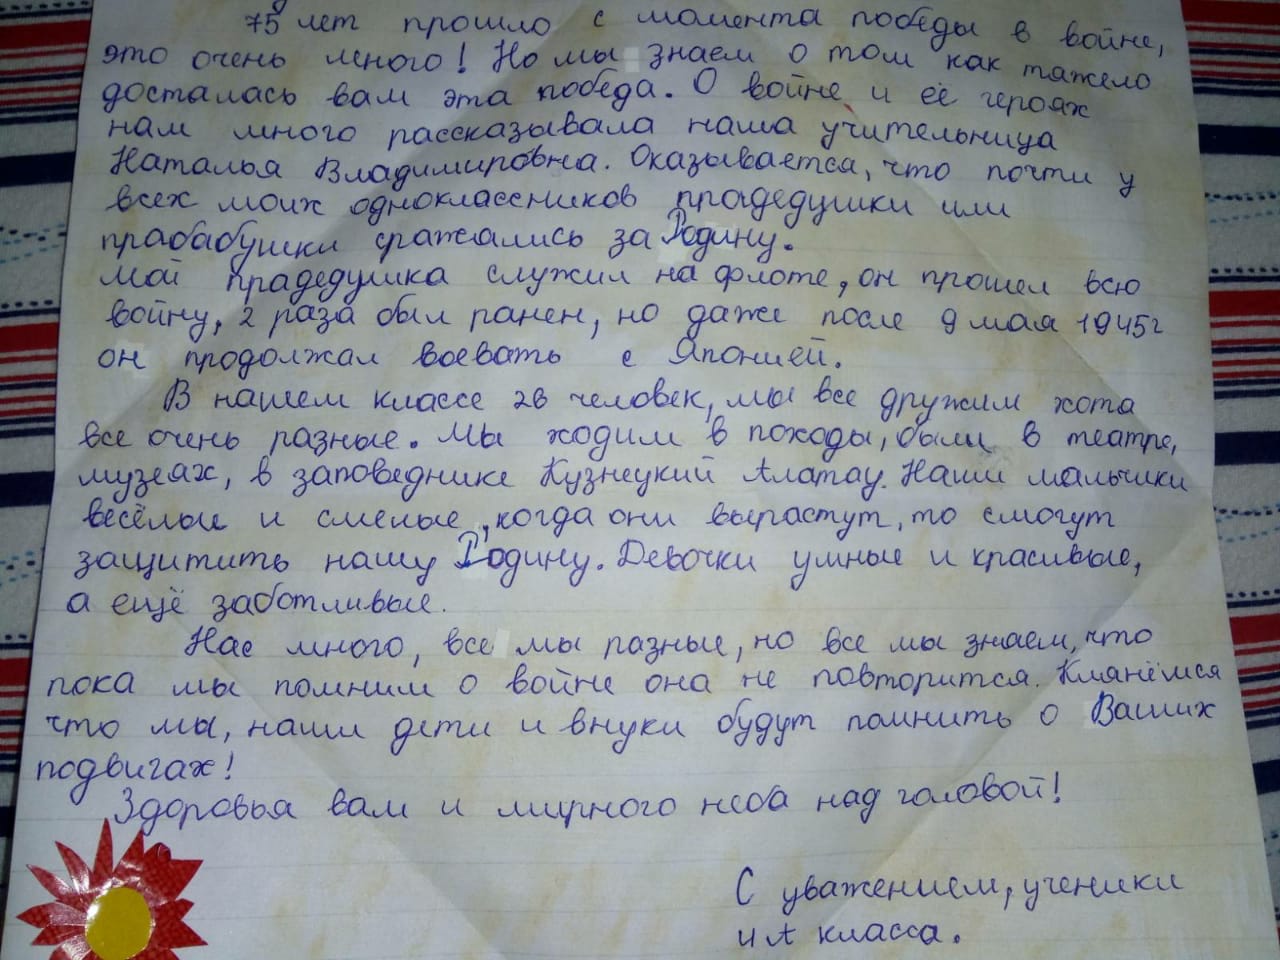 75 лет прошло с момента победы в войне,
это очень много! Но мы знаем о том как тяжело
досталась вам эта победа. О войне и её героях
нам много рассказывала наша учительница
Наталья Владимировна. Оказывается, что почти у
всех моих одноклассников прадедушки или
прабабушки сражались за Родину.
Мой прадедушка служил на флоте, он прошел всю
войну, 2 раза был ранен, но даже после 9 мая 1945г
он продолжал воевать с Японией.
В нашем классе 26 человек, мы все дружим хотя
все очень разные. Мы ходим в походы, были в театре,
музеях, в заповеднике Кузнецкий Алатау. Наши мальчики
весёлые и смелые, когда они вырастут, то смогут
защитить нашу Родину. Девочки умные и красивые,
а ещё заботливые.
Нас много, все мы разные, но все мы знаем, что
пока мы помним о войне она не повторится. Клянёмся
что мы, наши дети и внуки будут помнить о Ваших
подвигах!
Здоровья вам и мирного неба над головой!
С уважением, ученики
4 А класса.